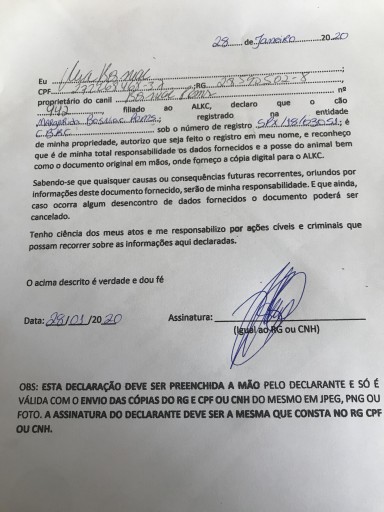 28 de Janeiro 2020
Eu
CPF ;RG 28590502-8
proprietário do canil nº
942 filiado ao ALKC, declaro que o cão
registrado na entidade
sob o número de registro ; é
de minha propriedade, autorizo que seja feito o registro em meu nome, e reconheço
que é de minha total responsabilidade os dados fornecidos e a posse do animal bem
como o documento original em mãos, onde forneço a cópia digital para o ALKC.
Sabendo-se que quaisquer causas ou consequências futuras recorrentes, oriundos por
informações deste documento fornecido, serão de minha responsabilidade. E que ainda,
caso ocorra algum desencontro de dados fornecidos o documento poderá ser
cancelado.
Tenho ciência dos meus atos e me responsabilizo por ações cíveis e criminais que
possam recorrer sobre as informações aqui declaradas.
O acima descrito é verdade e dou fé
Data: 28/01/2020 Assinatura:
(Igual ao RG ou CNH)
OBS: ESTA DECLARAÇÃO DEVE SER PREENCHIDA A MÃO PELO DECLARANTE E SÓ É
VÁLIDA COM O ENVIO DAS CÓPIAS DO RG E CPF OU CNH DO MESMO EM JPEG, PNG OU
FOTO. A ASSINATURA DO DECLARANTE DEVE SER A MESMA QUE CONSTA NO RG CPF
OU CNH.